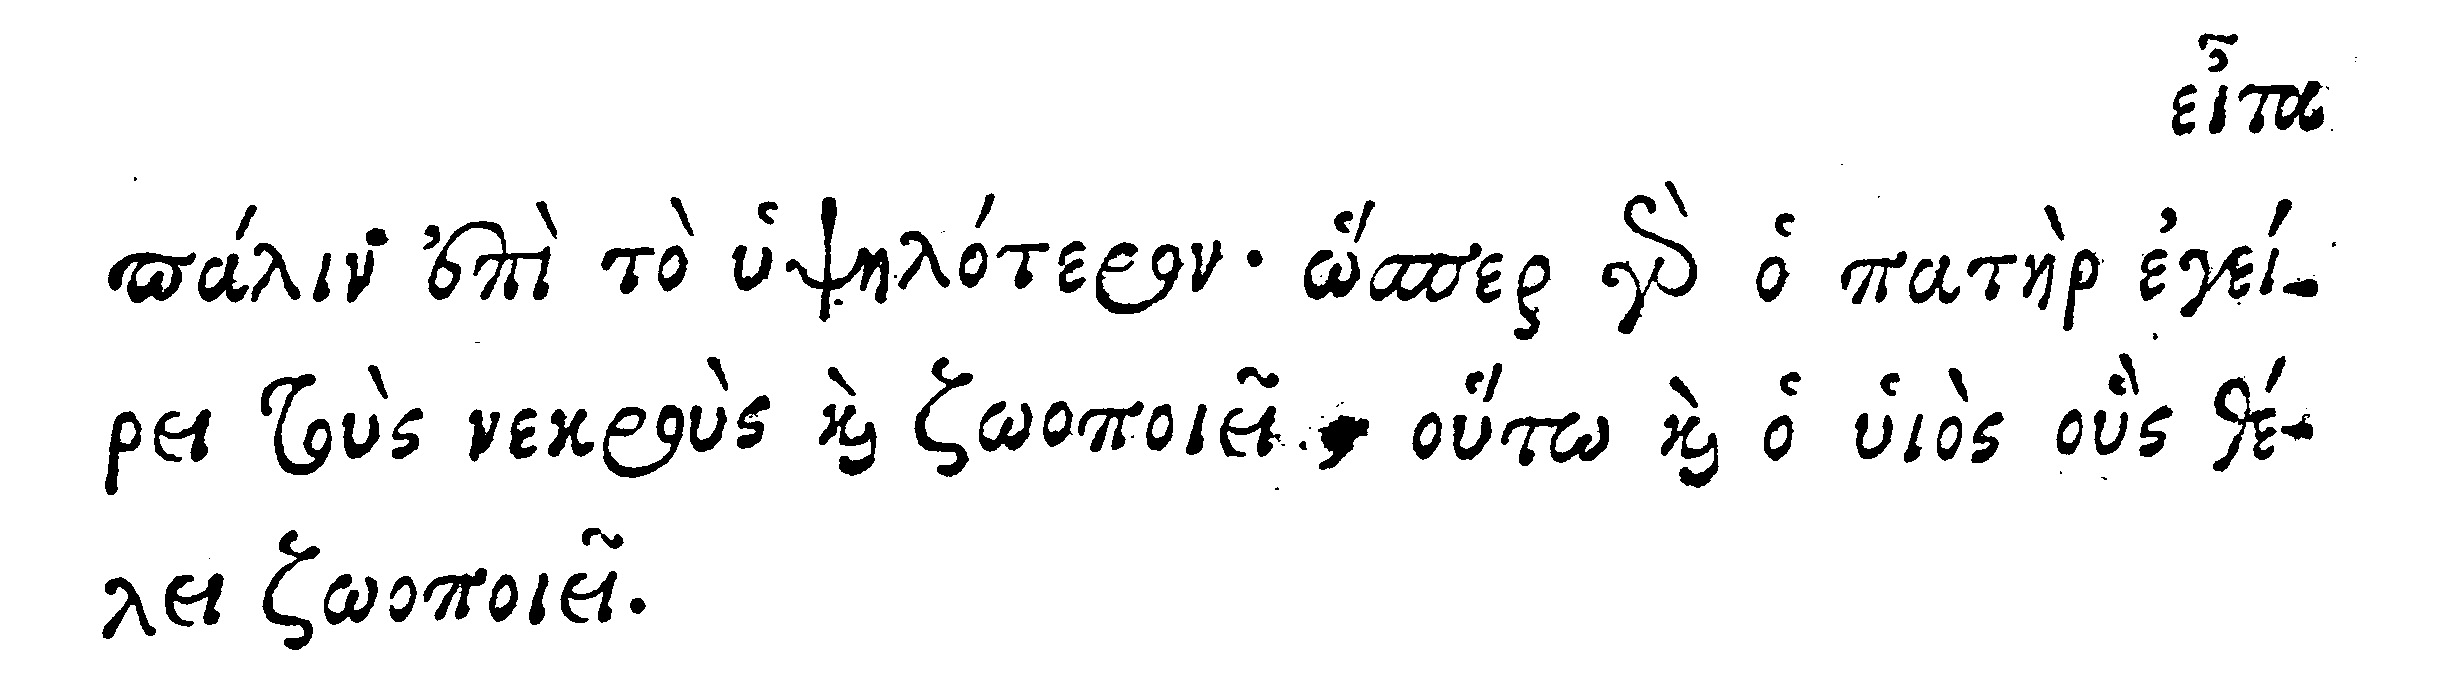 εἶτα
πάλιν ἐπὶ τὸ ὑψηλότερον· ὥσπερ γὰρ ὁ πατὴρ ἐγεί-
ρει τοὺς νεκροὺς καὶ ζωοποιεῖ, οὕτω καὶ ὁ ὑιὸς οὓς θέ-
λει ζωοποιεῖ.